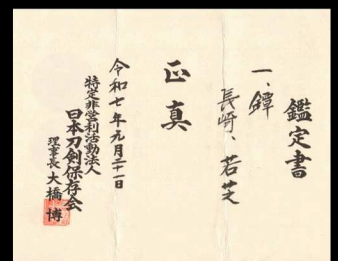 鑑定書
一、鐔
長崎、若芝
正真
令和七年元月二十一日
特定非営利活動法人
日本刀剣保存会
理事長 大橋博